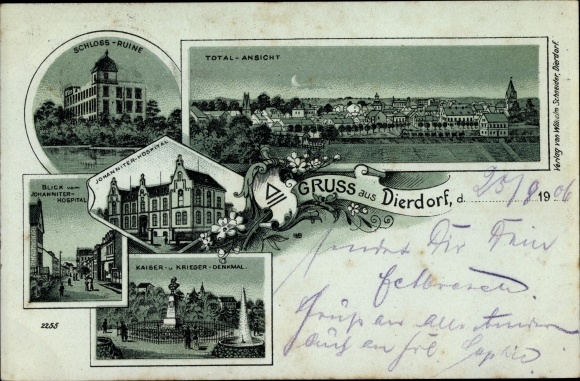 SCHLOSS-RUINE
TOTAL-ANSICHT
JOHANNITER-HOSPITAL
BLICK VOM
JOHANNITER-
HOSPITAL
KAISER- U KRIEGER-DENKMAL.
GRUSS aus Dierdorf, d. 25/8 1906
sendet Dir Dein
Gruss an Alle Anderen
Auch an Frl. Sophie
2255
Verlag von Wilhelm Schneider, Dierdorf.